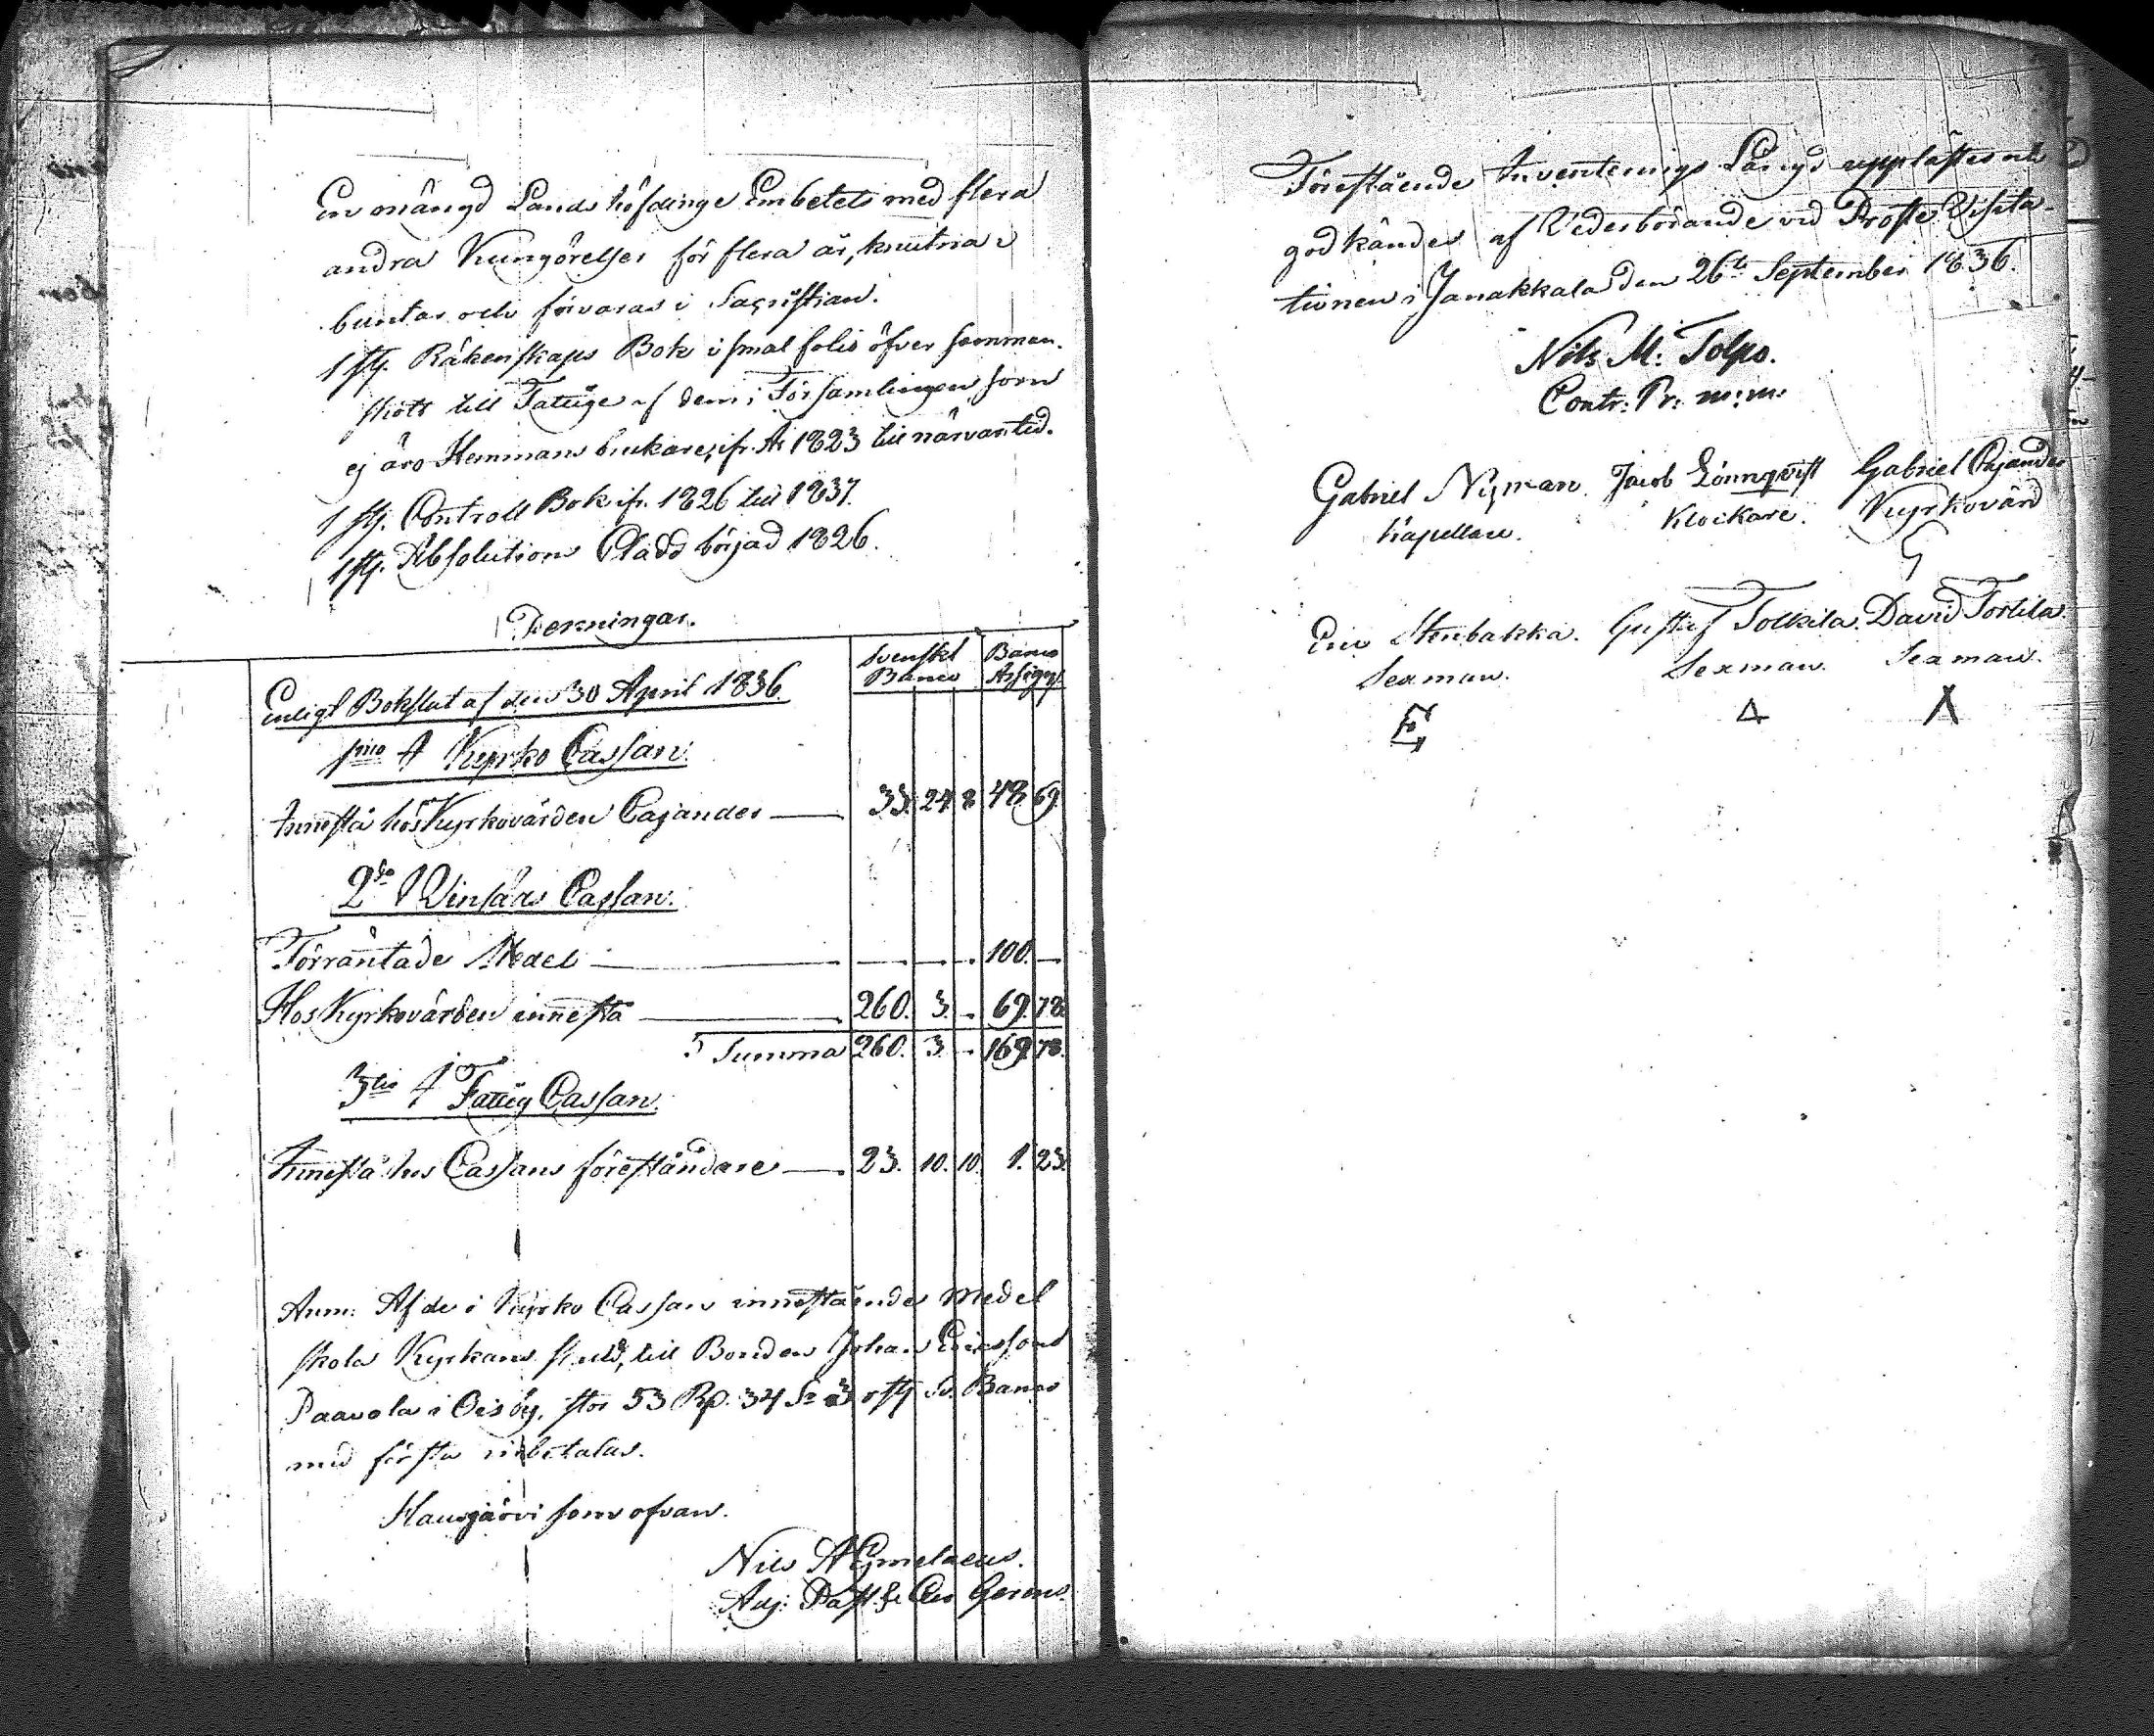 En mängd Landshöfdinge Embetets med flera
andra Kungörelser för flera år, knutna i
buntar och förvaras i Sacristian.
1 st. Räkenskaps Bok i smal folio öfver samman-
skott till Fattige af dem i Församlingen som
ej äro Hemmans brukare, ifr. År 1823 till närvar. tid.
1 st. Controll Bok ifr. 1826 till 1837.
1 st. Absolutions Bladd börjad 1826.
Penningar.
Svenskt Banco
Banco Assign.
Enligt Bokslut af den 30 April 1836.
pmo Kyrko Cassan.
Innestå hos Kyrkovärden Cajander 33. 24. 8 48 69.
2do Winfärs Cassan.
Förräntade Medel — — — 100. —
Hos Kyrkovärden innestå 260. 3. - 69. 78.
Summa 260. 3. - 169. 78.
3tio Fattig Cassan.
Innestå hos Cassans föreståndare 23. 10. 10. 1. 23.
Anm: Af de i Kyrko Cassan innestående Medel
skola Kyrkans skuld, till Bonden Johan Ericssons
Paavola i Ois by, stor 53 Rp. 34 S. 3 rst Sv. Banco
med första inbetalas.
Hausjärvi som ofvan.
Nils Agmelaeus.
Adj. Past.
Förestående Inventerings Längd upplästes och
godkändes af Vederbörande vid Prosts Visita-
tionen i Janakkala den 26te September 1836.
Nils M. Tolpo.
Contr: Pr: m:m:
Gabriel Nyman. Jacob Lönnqvist Gabriel Cajander
Kapellan. Klockare. Kyrkovärd
Eric Stenbakka. Gustaf Tolkila. David Torlila.
Sexman. Sexman. Sexman.